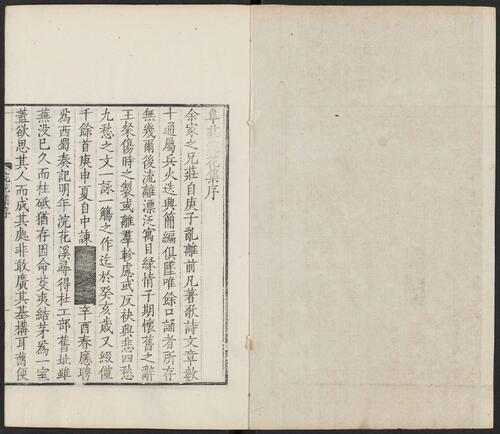 韋莊浣花集序
余家之兄莊自庚子亂離前凡著歌詩文章數
十通屬兵火迭興簡編俱墜唯餘口誦者所存
無幾爾後流離漂泛寓目緣情子期懷舊之辭
王粲傷時之製或離羣軫慮或反袂興悲四愁
九愁之文一詠一觴之作迄於癸亥歲又綴僅
千餘首庚申夏自中諫辛酉春應聘
爲西蜀奏記明年浣花溪尋得杜工部舊址雖
蕪没已久而柱砥猶存因命芟夷結茅爲一室
蓋欲思其人而成其處非敢廣其基構耳舊便
浣花集序